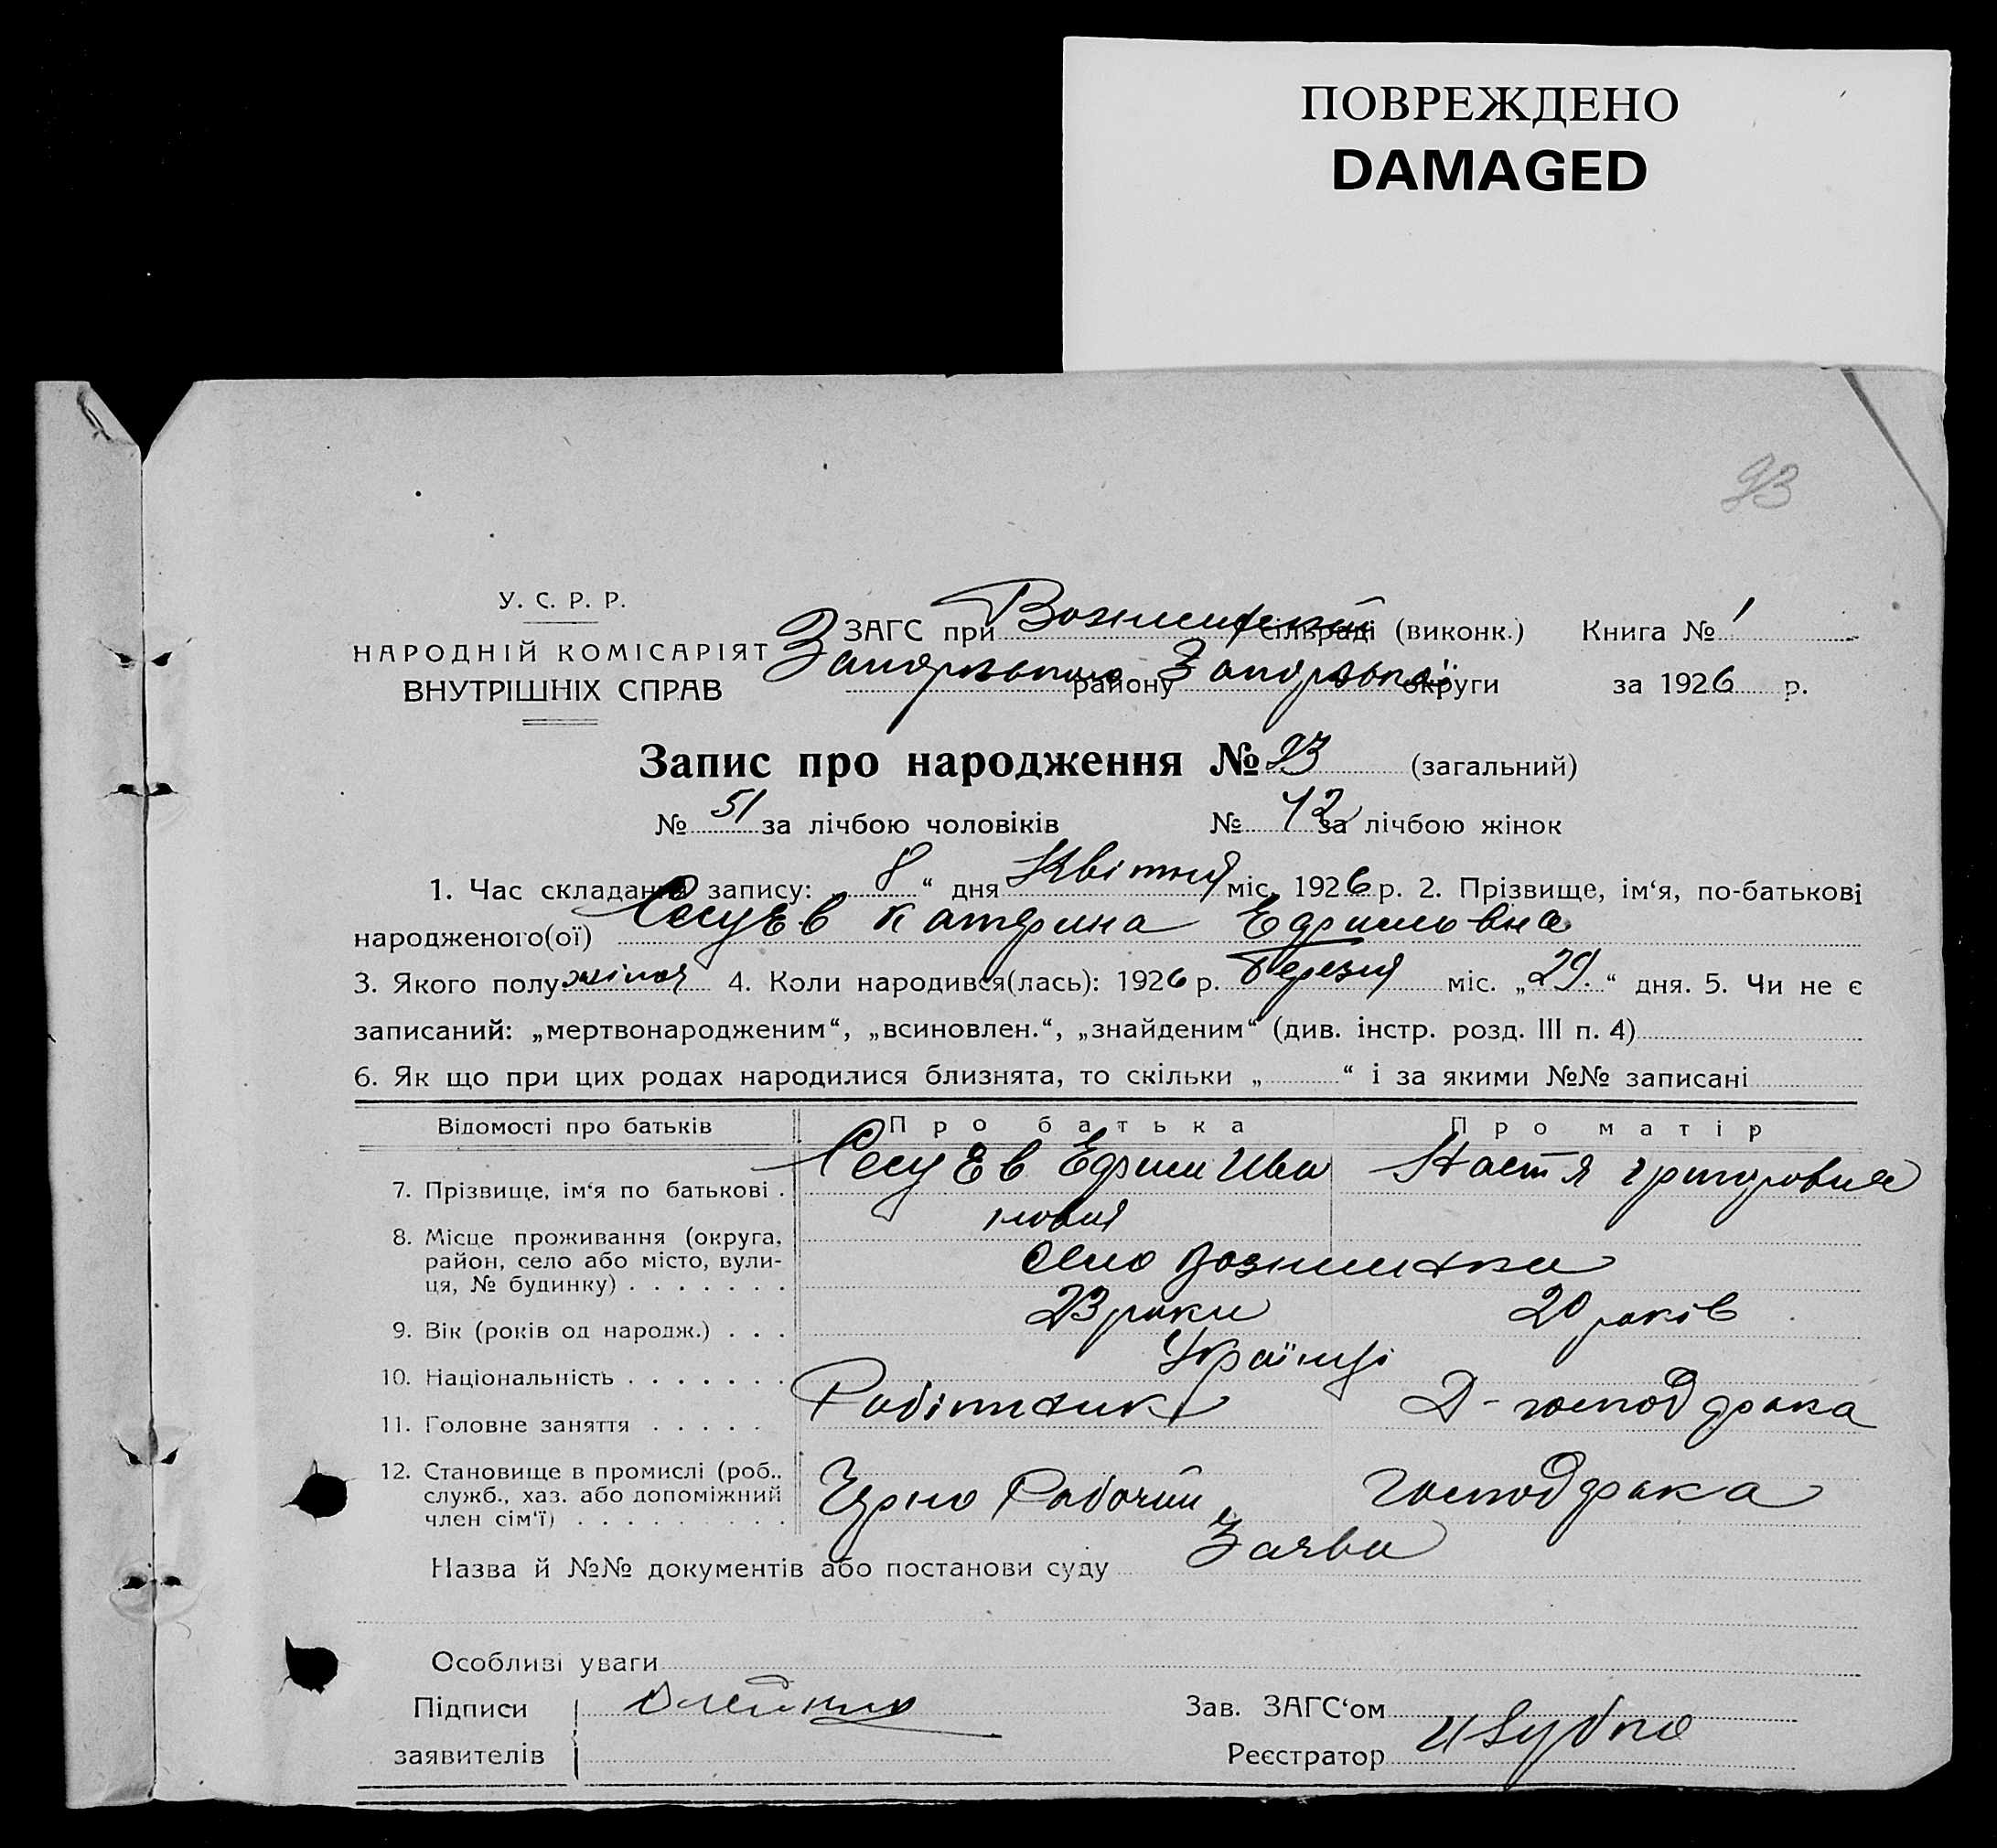 ПОВРЕЖДЕНО
DAMAGED
93
У. С. Р. Р.
НАРОДНІЙ КОМІСАРІЯТ
ВНУТРІШНІХ СПРАВ
ЗАГС при Вознесенській сільраді (виконк.) Книга № 1
району округи за 1926 р.
Запис про народження № 93 (загальний)
№ 51 за лічбою чоловіків № 42 за лічбою жінок
1. Час складання запису: „ 8 “ дня Квітня міс. 1926 р. 2. Прізвище, ім‘я, по-батькові
народженого(ої) Катерина
3. Якого полу: жіноч 4. Коли народився(лась): 1926 р. Березня міс. „ 29. “ дня. 5. Чи не є
записаний: „мертвонародженим“, „всиновлен.“, „знайденим“ (див. інстр. розд. III п. 4)
6. Як що при цих родах народилися близнята, то скільки „ “ і за якими №№ записані
Відомості про батьків Про батька Про матір
7. Прізвище, ім‘я по батькові . Ива Настя
8. Місце проживання (округа,
район, село або місто, вули-
ця, № будинку) . . . . . . . Село
9. Вік (років од народж.) . . . 23 роки 20 років
10. Національність . . . . . . . Українці
11. Головне заняття . . . . . Робітник Д-господарка
12. Становище в промислі (роб..
служб., хаз. або допоміжний
член сім‘ї) . . . . . . . . . Рабочий господарка
Назва й №№ документів або постанови суду Заява
Особливі уваги
Підписи Зав. ЗАГС‘ом
заявителів Реєстратор